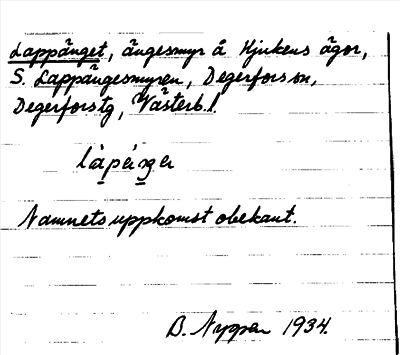 Lappänget, ängesmyr å Hjukens ägor,
S. Lappängesmyren, Degerfors sn,
Degerforstg, Västerb.l.
Namnets uppkomst obekant.
B. Nygren 1934.